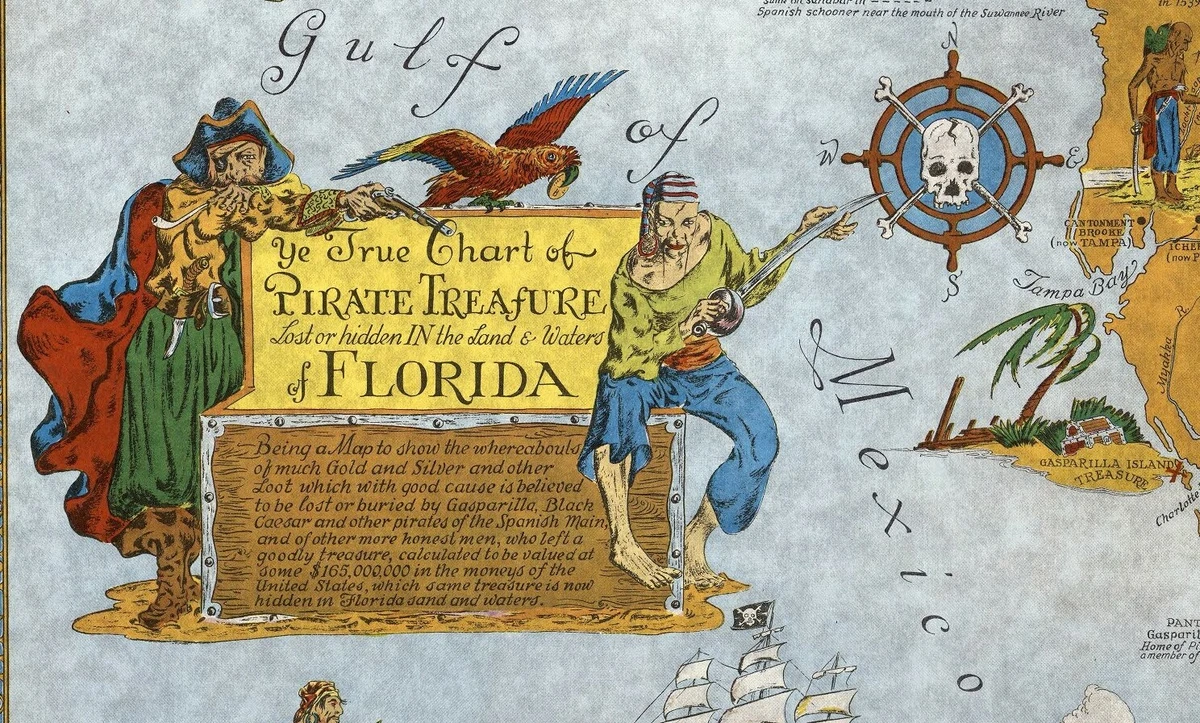 Spanish schooner near the mouth of the Suwannee River
in 1539
Gulf
of
Mexico
N
W
E
S
Ye True Chart of
PIRATE TREAſURE
Lost or hidden IN the Land & Waters
of FLORIDA
Being a Map to show the whereabouts
of much Gold and Silver and other
Loot which with good cause is believed
to be lost or buried by Gasparilla, Black
Caesar and other pirates of the Spanish Main,
and of other more honest men, who left a
goodly treasure, calculated to be valued at
some $165,000,000 in the moneys of the
United States, which same treasure is now
hidden in Florida sand and waters.
CANTONMENT
BROOKE
(now TAMPA)
(now P
Tampa Bay
Myakka R
GASPARILLA ISLAND
TREASURE
Charlotte
PANT
Gasparil
Home of Pi
a member of